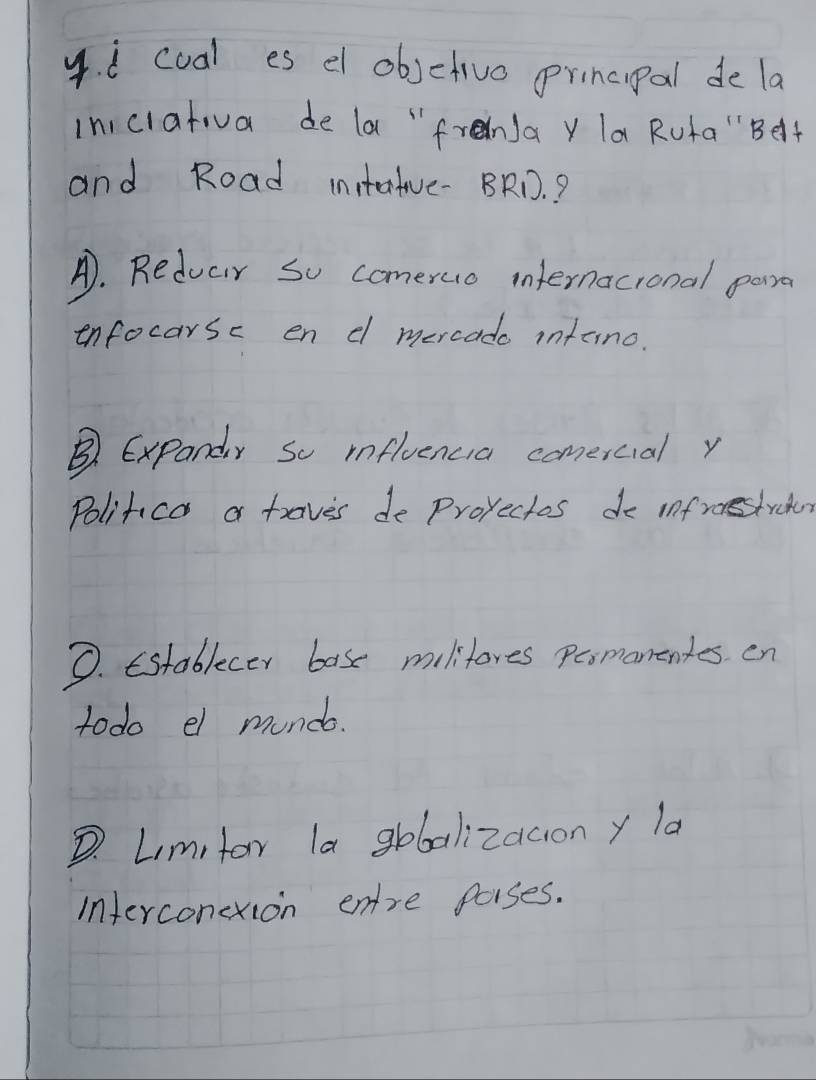 4. ¿ Cual es el objetivo principal de la
iniciativa de la "franja y la Ruta" Belt
and Road initative- BRI). ?
A). Reducir su comercio internacional para
enfocarse en el mercado interno.
B). Expandir su influencia comercial y
Politica a través de Proyectos de infraestructur
D. Establecer base militares permanentes en
todo el mundo.
D. Limitar la globalizacion y la
interconexión entre paises.
Norma